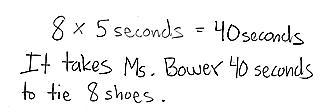 8 × 5 seconds = 40 seconds
It takes Ms. Bower 40 seconds
to tie 8 shoes.